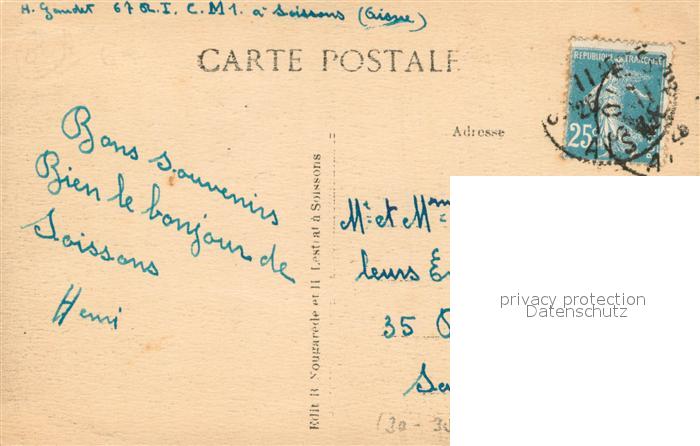 H. Gaudet 67 R.I. C.M1. à Soissons (Aisne)
CARTE POSTALE
REPUBLIQUE FRANÇAISE
25c
AISNE
Adresse
Bons souvenirs
Bien le bonjour de
Soissons
Henri
Edit R Nougarède et H Lestrat à Soissons
Mr et Mme
leurs
35
privacy protection
Datenschutz